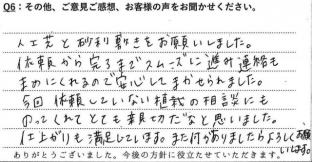 Q6：その他、ご意見ご感想、お客様の声をお聞かせください。
人工芝と砂利敷きをお願いしました。
依頼から完了までスムーズに進み連絡も
まめにくれるので安心してまかせられました。
今回依頼していない植栽の相談にも
のってくれてとても親切だなと思いました。
仕上がりも満足しています。また何かありましたらよろしくお願いします。
ありがとうございました。今後の方針に役立たせていただきます。